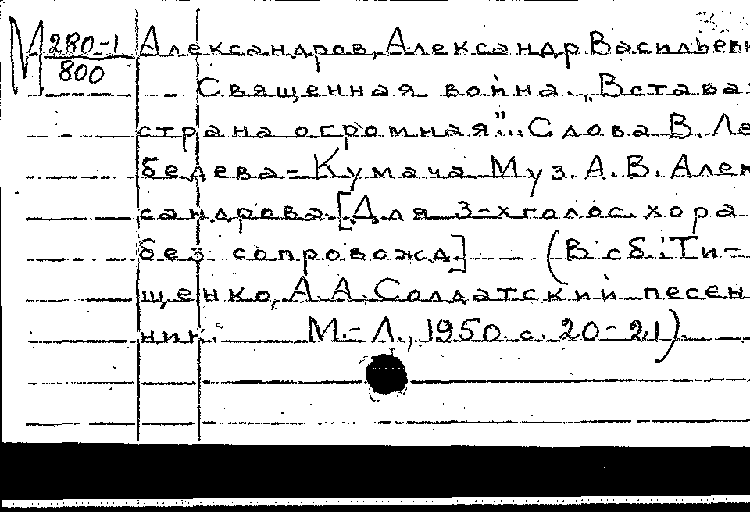 М 280-1/800 Александров, Александр Васильеви
Священная война. „Встава-
страна огромная"... Слова В. Ле
бедева-Кумача Муз. А. В. Алек
сандрова. [Для 3-хголос. хора
без сопровожд.] (В сб.: Ти-
щенко, А. А. Солдатский песен
ник. М.-Л., 1950 с. 20-21)